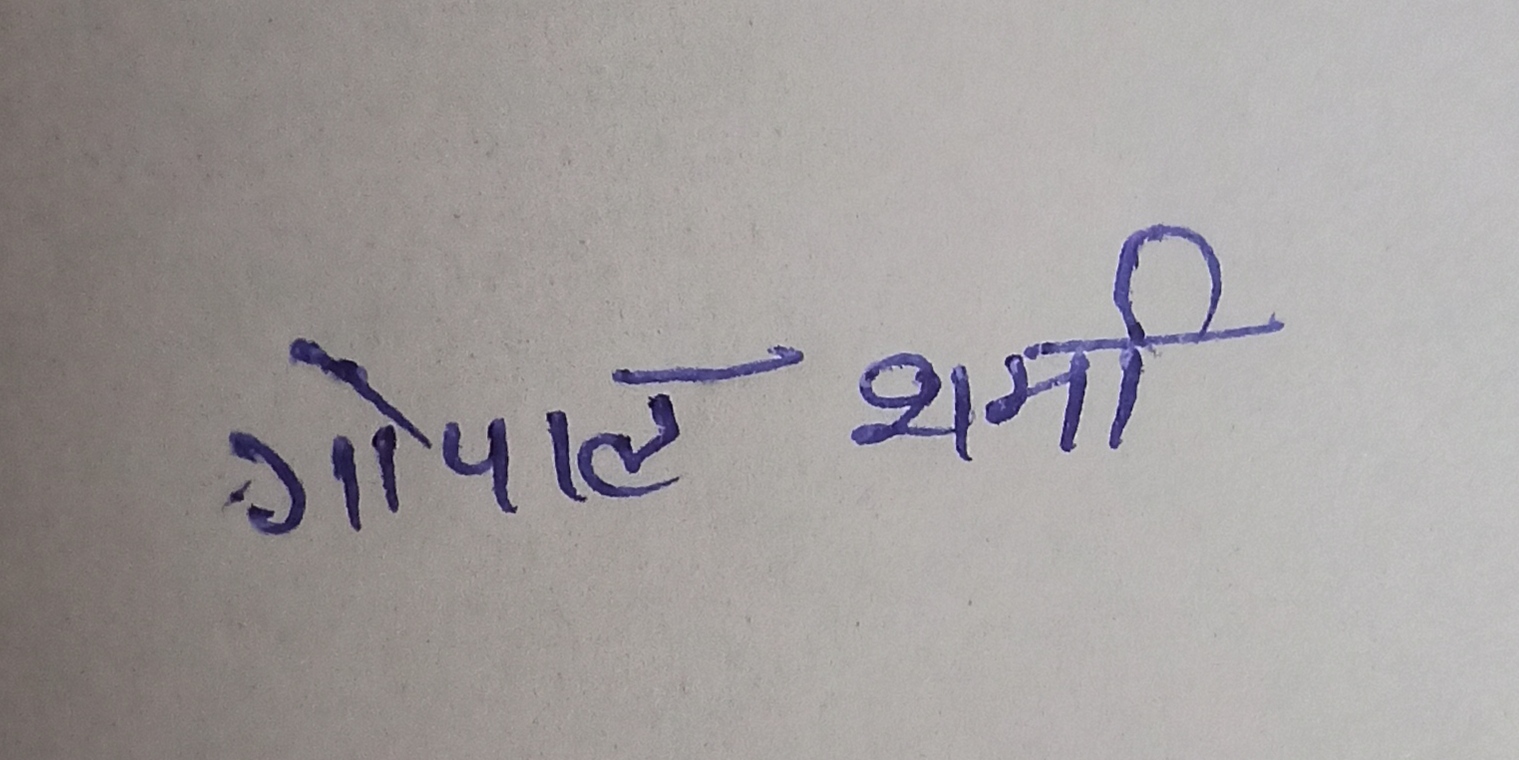 गोपाल शर्मा